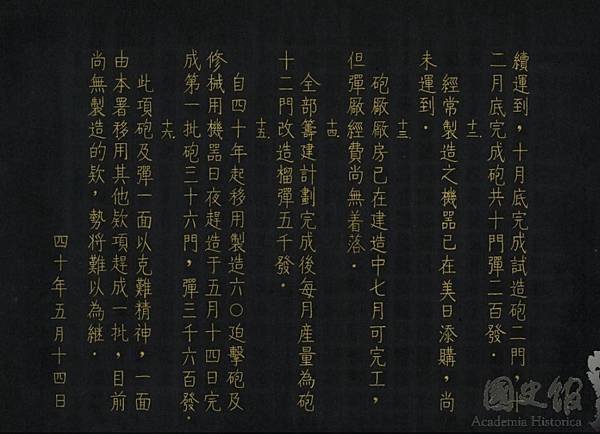 續運到，十月底完成試造砲二門，
二月底完成砲共十門彈二百發．
十二.
經常製造之機器已在美日添購，尚
未運到．
十三.
砲廠廠房已在建造中七月可完工，
但彈廠經費尚無着落．
十四.
全部籌建計劃完成後每月産量為砲
十二門改造榴彈五千發．
十五.
自四十年起移用製造六〇迫擊砲及
修械用機器日夜趕造于五月十四日完
成第一批砲三十六門，彈三千六百發．
十六.
此項砲及彈一面以克難精神，一面
由本署移用其他欵項趕成一批，目前
尚無製造的欵，勢將難以為継．
四十年五月十四日
國史館
Academia Historica